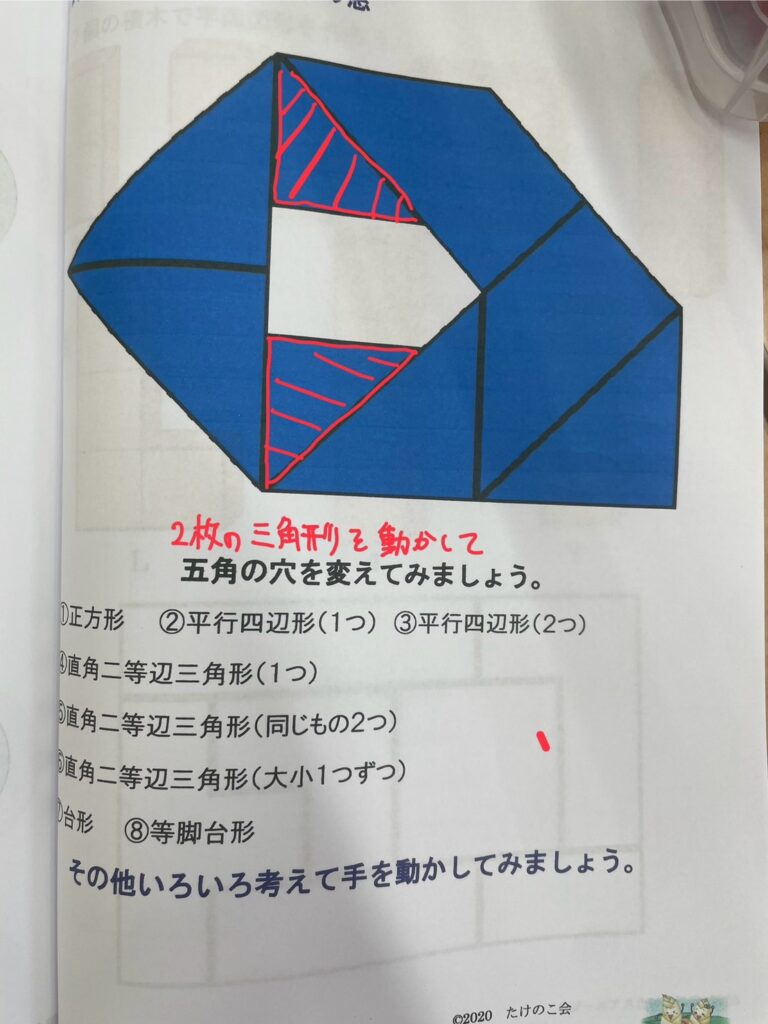 2枚の三角形を動かして
五角の穴を変えてみましょう。
①正方形 ②平行四辺形(1つ) ③平行四辺形(2つ)
④直角二等辺三角形(1つ)
⑤直角二等辺三角形(同じもの2つ)
⑥直角二等辺三角形(大小1つずつ)
⑦台形 ⑧等脚台形
その他いろいろ考えて手を動かしてみましょう。
©2020 たけのこ会